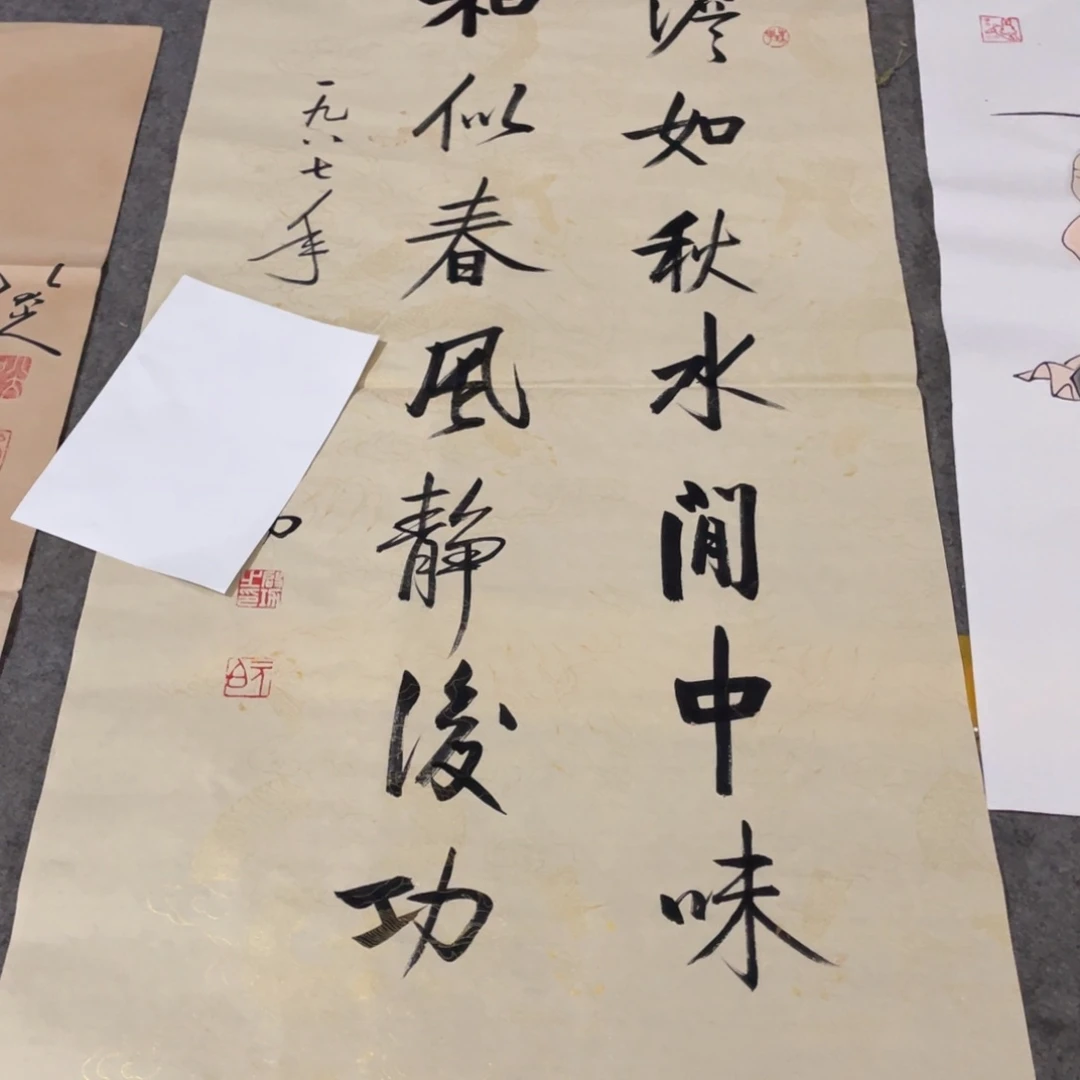 澹如秋水閒中味
和似春風静後功
一九八七年